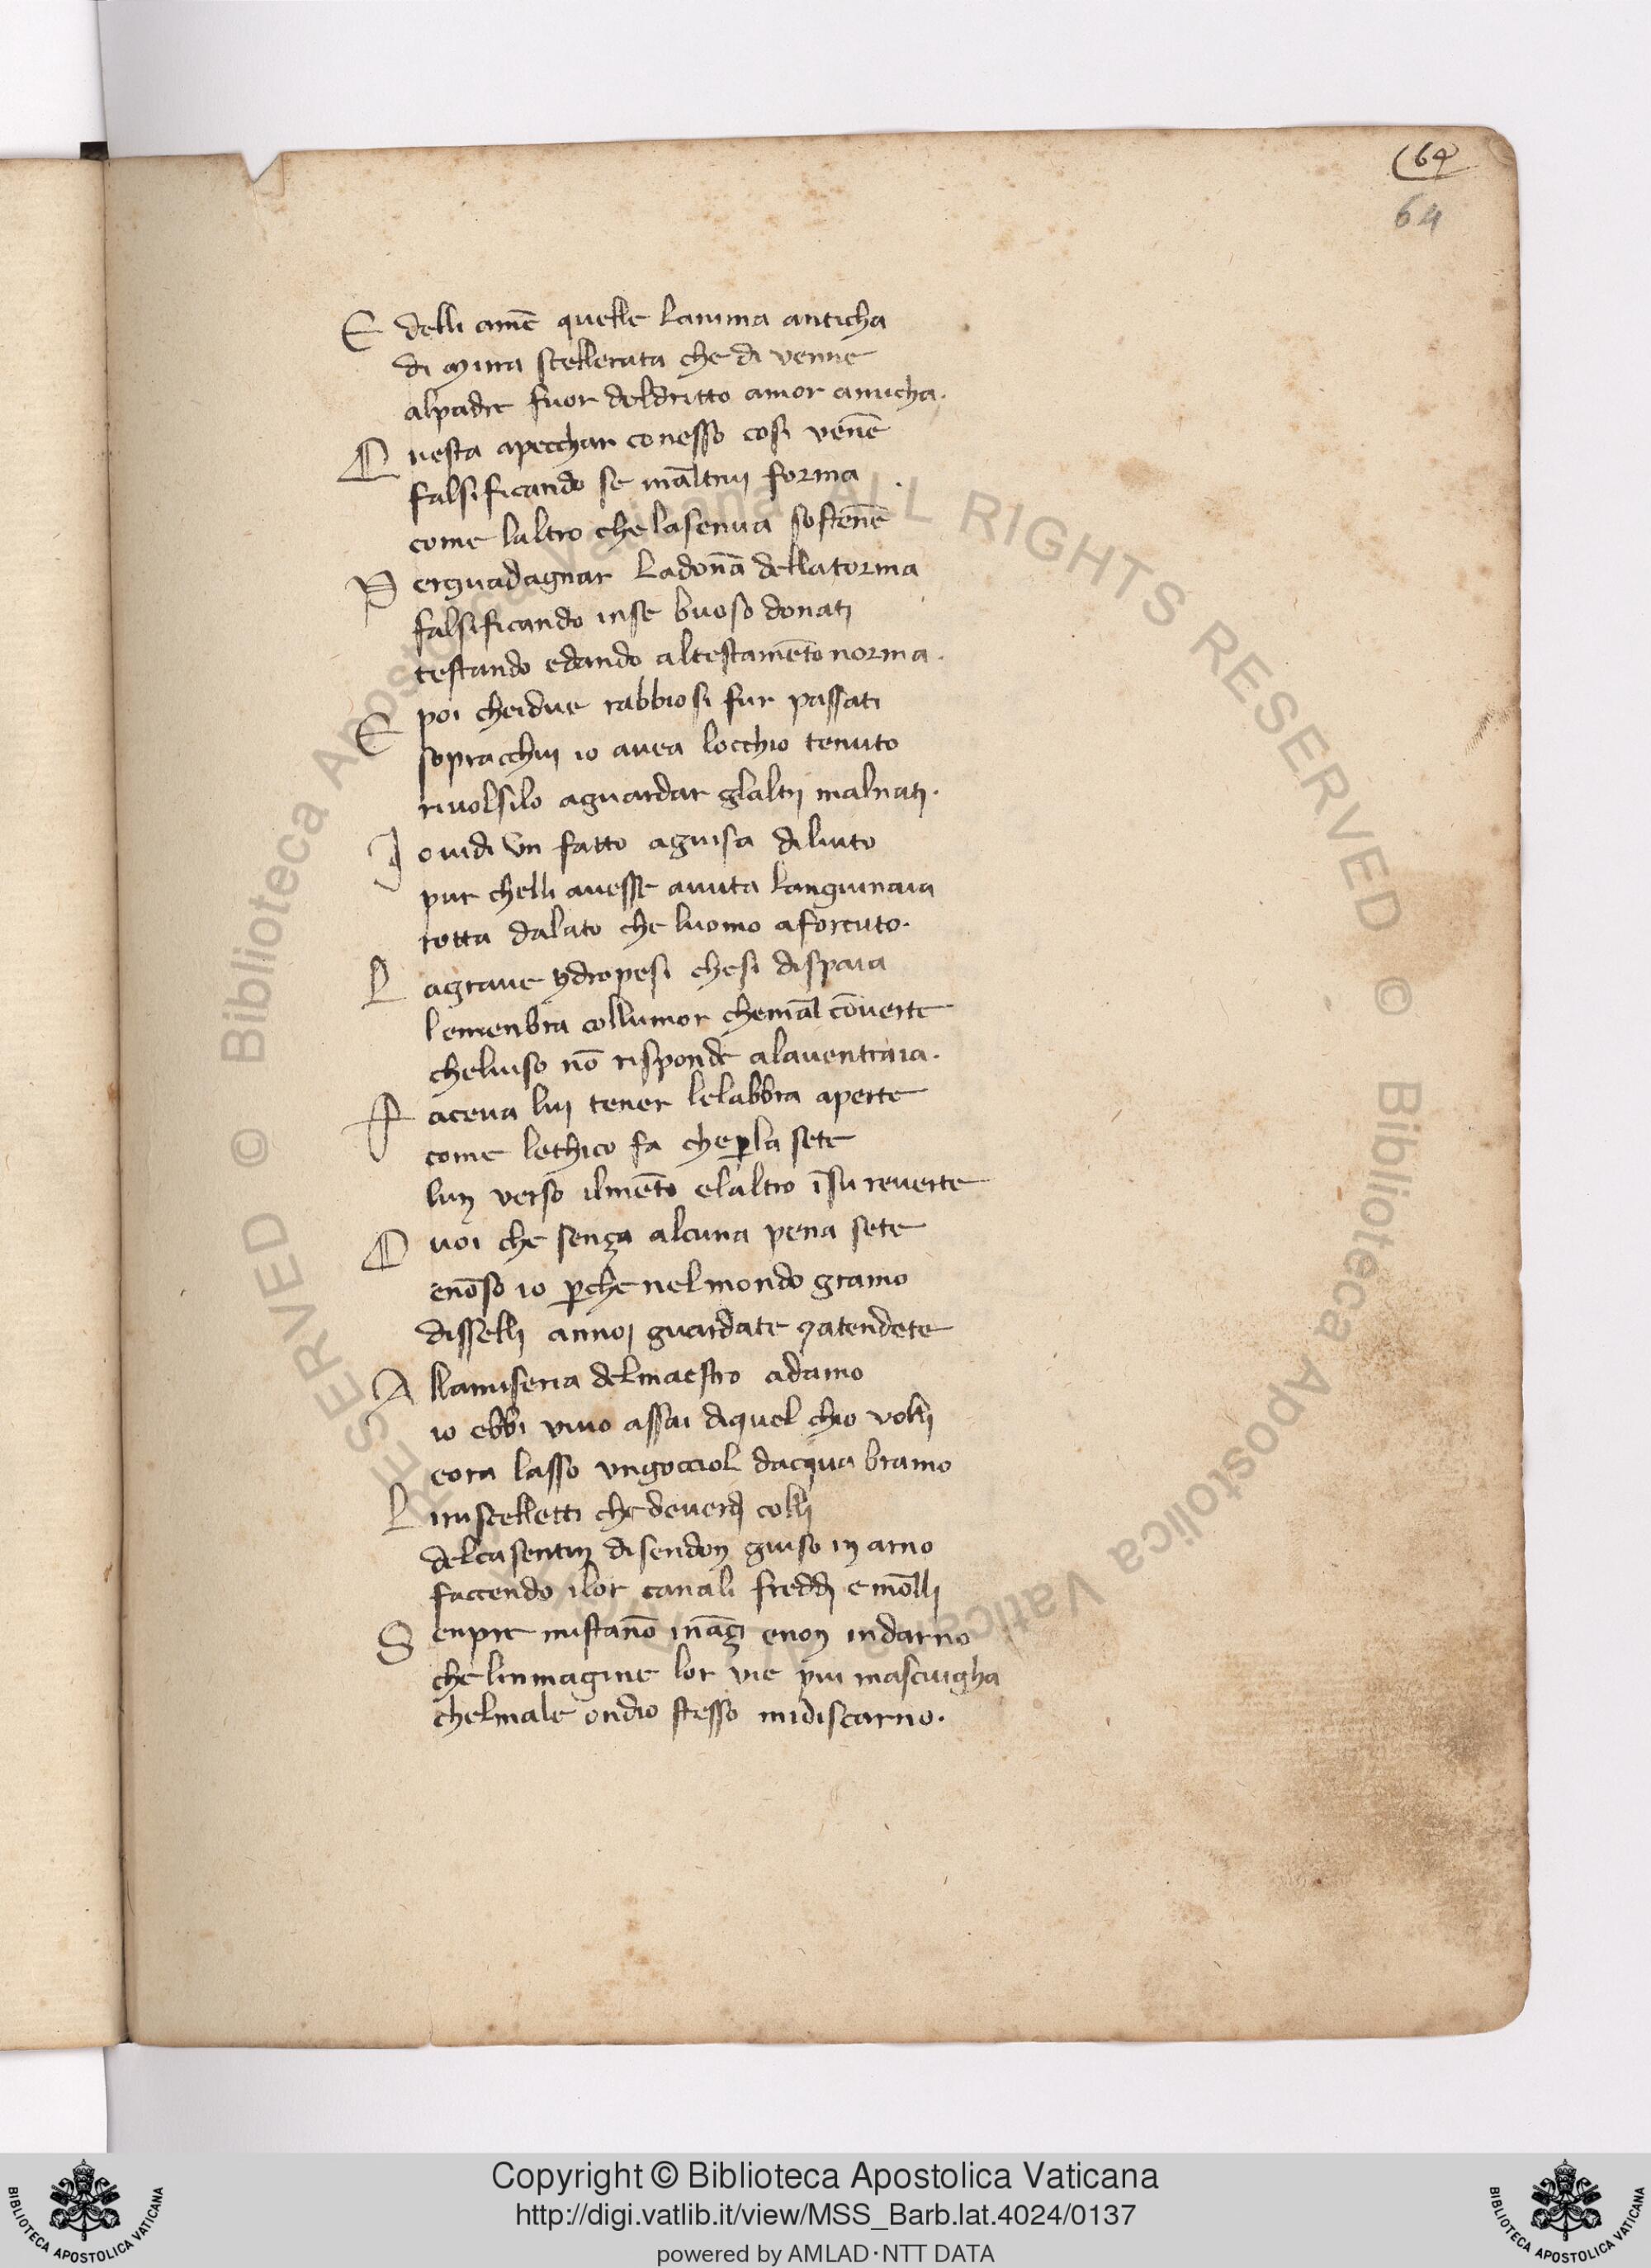 (64
64
E delli ame᷄ quelle lanima anticha
di mirra scellerata che di venne
alpadre fuor deldritto amor amicha.
Q uesta apecchar conesso cosi vene᷄
falsificando se ina᷄ltruj forma
come laltro che lasenua sostene᷄
P erguadagnar ladon̄a dellatorma
falsificando inse buoso donatj
testando edando altestame᷄to norma.
E poi cheidue rabbiosi fur passati
sopracchuj io auea locchio tenuto
riuolsilo aguardar glaltrj malnatj.
I o uidi vn fatto aguisa diliuto
pur chelli auesse auuta languinaia
rotta dalato che luomo aforcuto.
L agraue ydropesi chesi dispaia
lemenbra collumor chema᷄l co᷄uerte
cheluiso no᷄ risponde alauentraia.
F aceua luj tener lelabbra aperte
come lethico fa che ꝑla sete
lun verso ilme᷄to elaltro ī su reuerte
O uoi che sença alcuna pena sete
eno᷄so io ꝑche nelmondo gramo
dissellj annoj guardate ⁊atendete
A llamiseria delmaestro adamo
io ebbi viuo assai diquel chio vollj
eora lasso vngocciol dacqua bramo
L iruscelletti chedeuerdj collj
delcasentin disendon giuso in arno
faccendo ilor canali freddj emo᷄llj
S enpre mistano᷄ ina᷄çi enon indarno
chelinmagine lor vie piu masciugha
chelmale ondio stesso midiscarno.
Copyright © Biblioteca Apostolica Vaticana
http://digi.vatlib.it/view/MSS_Barb.lat.4024/0137
powered by AMLAD·NTT DATA
BIBLIOTECA APOSTOLICA VATICANA
BIBLIOTECA APOSTOLICA VATICANA
© Biblioteca Apostolica Vaticana ALL RIGHTS RESERVED © Biblioteca Apostolica Vaticana ALL RIGHTS RESERVED